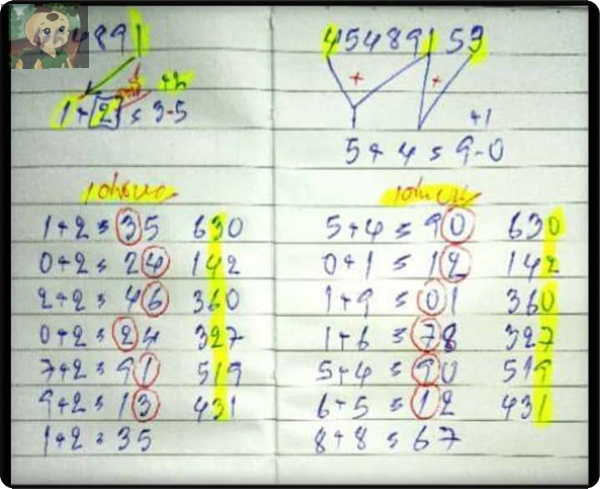 4891
+2
1+2 = 3-5
1+2 = 35 630
0+2 = 24 142
2+2 = 46 360
0+2 = 24 327
7+2 = 91 519
9+2 = 13 431
1+2 = 35
454891 53
+ +
+1
5+4 = 9-0
5+4 = 90 630
0+1 = 12 142
1+9 = 01 360
1+6 = 78 327
5+4 = 90 519
6+5 = 12 431
8+8 = 67